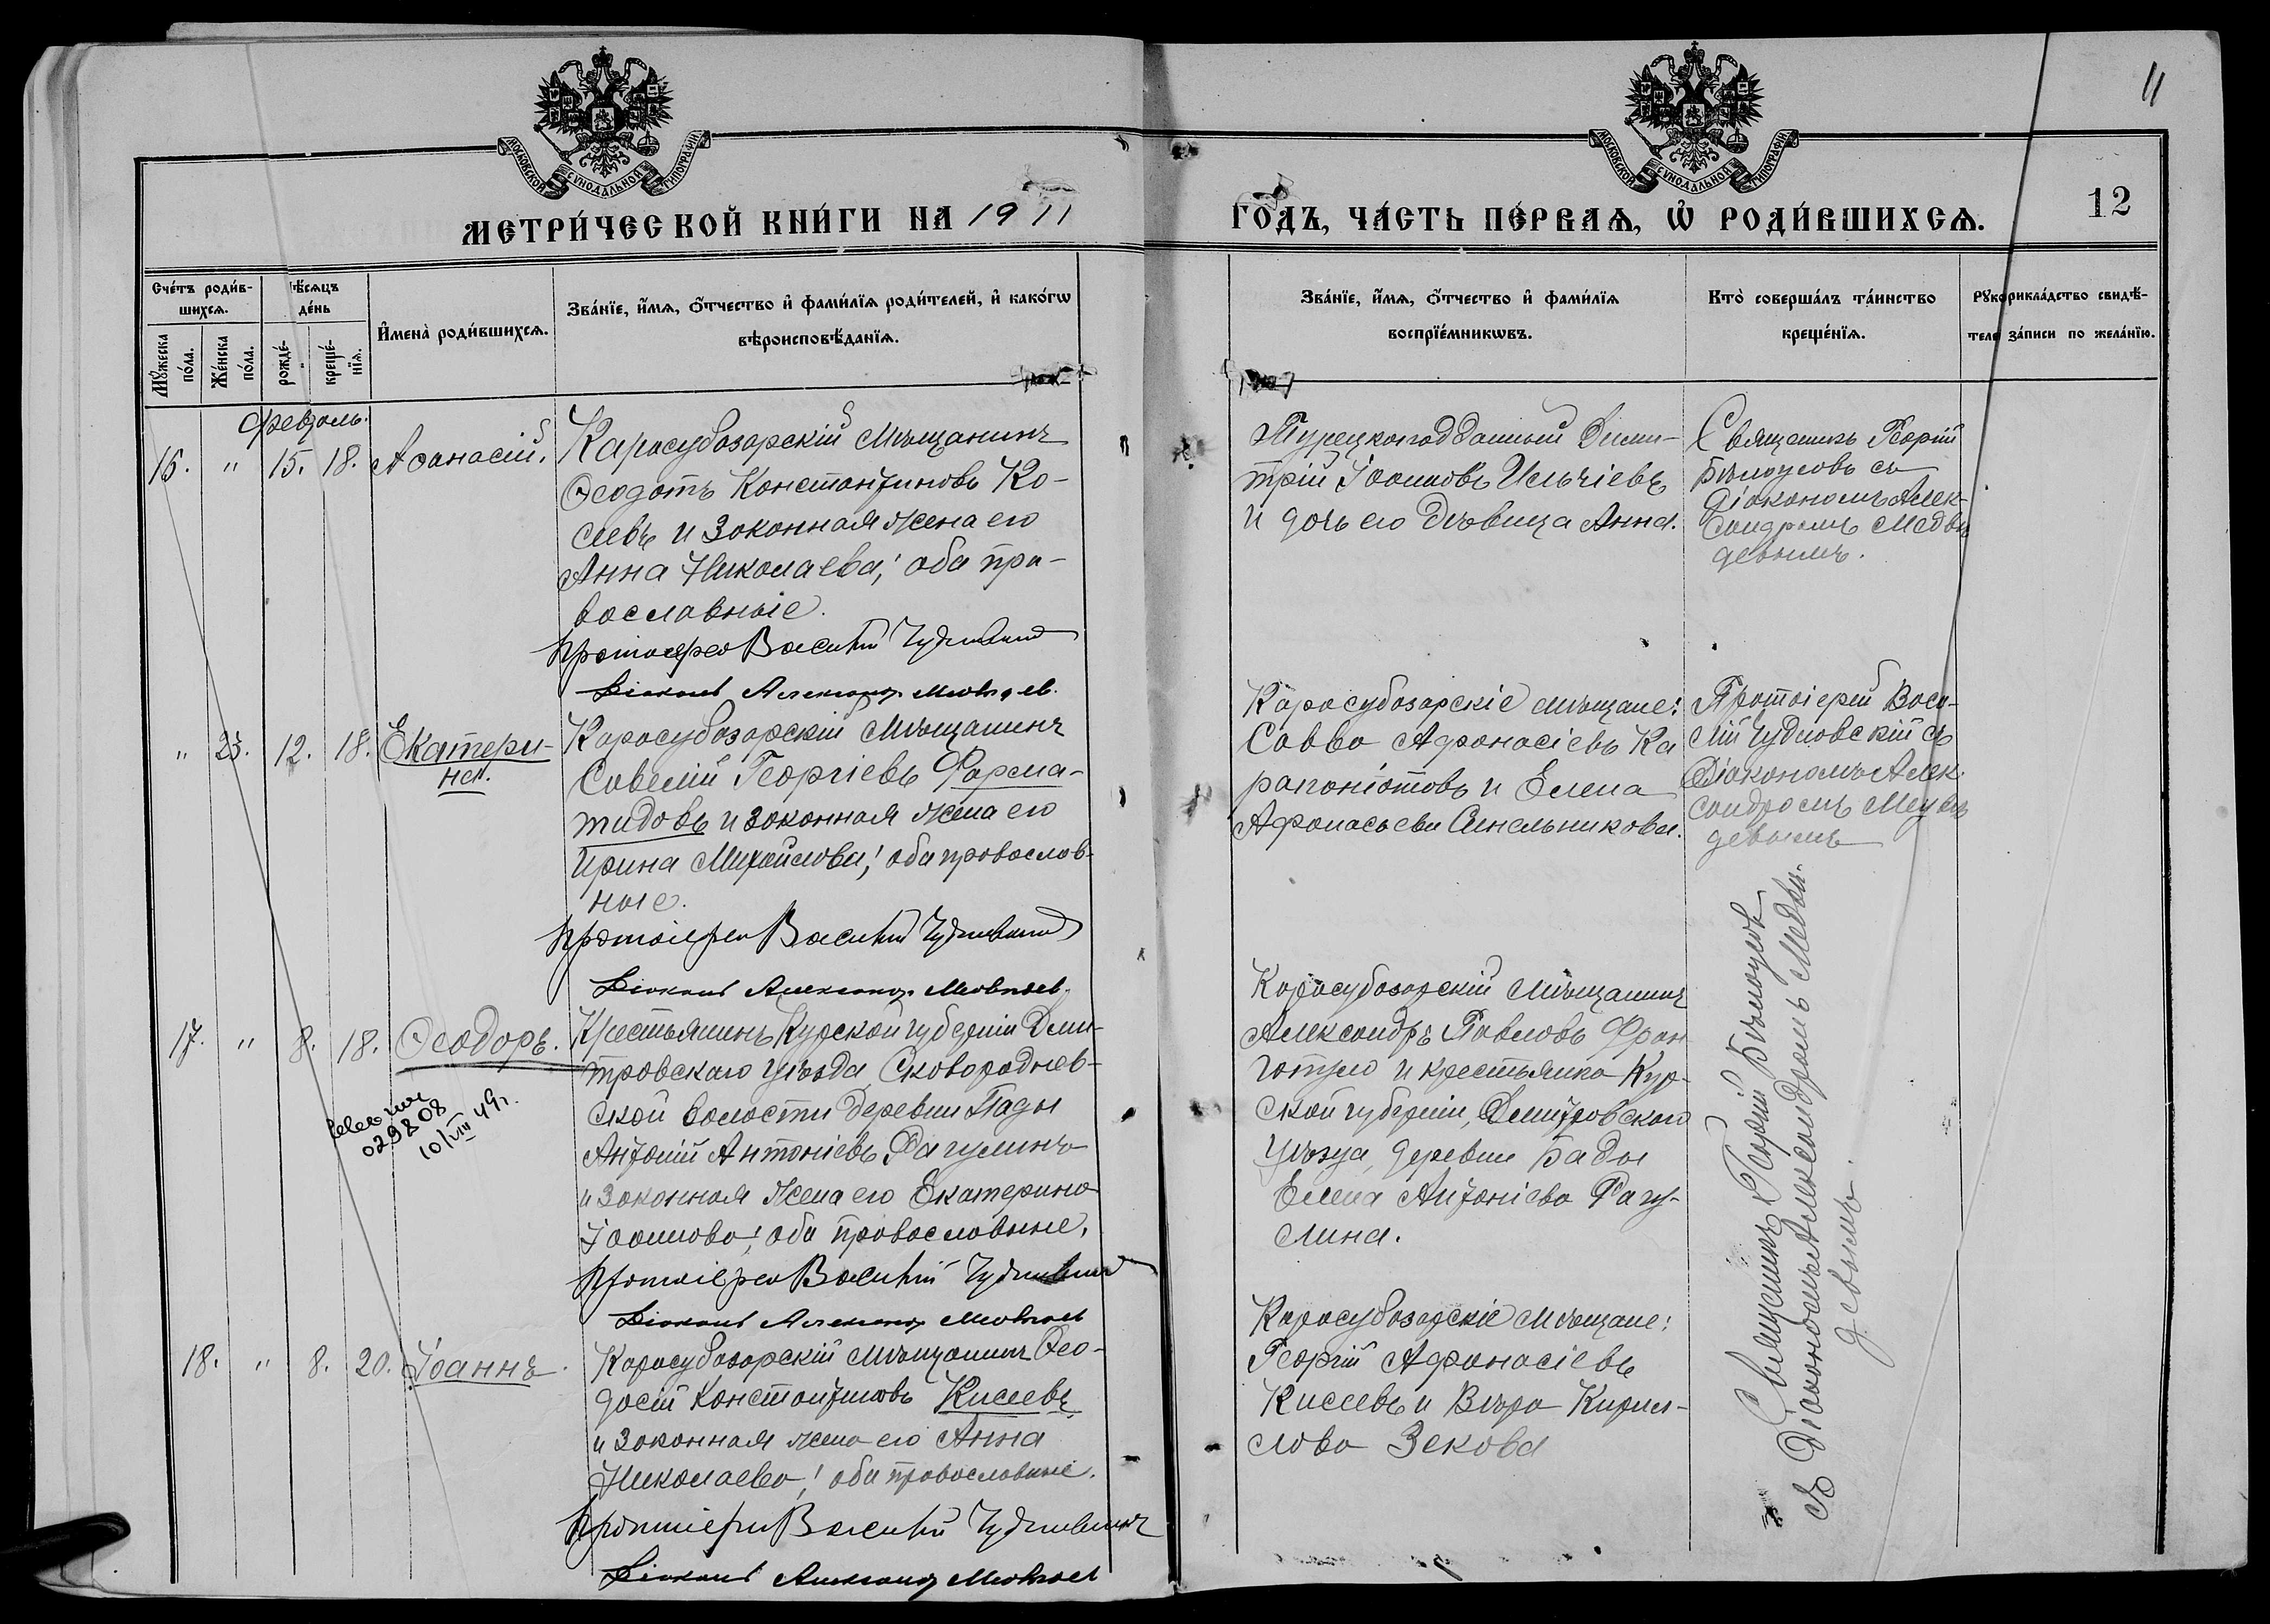 11
МОСКОВСКОЙ СѴНОДАЛЬНОЙ ТИПОГРАФІИ
МОСКОВСКОЙ СѴНОДАЛЬНОЙ ТИПОГРАФІИ
МЕТРИ́ЧЕСКОЙ КНИ́ГИ НА 1911
ГО́ДЪ, ЧА́СТЬ ПЕ́РВАѦ, Ѽ РОДИ́ВШИХСѦ.
12
Сче́тъ роди́в-
шихсѧ.
Мꙋ́жеска по́ла.
Же́нска по́ла.
мѣ́сѧцъ
де́нь
рожде́-
креще́-
нїѧ.
И҆мена̀ роди́вшихсѧ.
Зва́нїе, и҆́мѧ, ѻ҆́тчество и҆ фами́лїѧ роди́телей, и҆ како́гѡ
вѣроисповѣ́данїѧ.
Зва́нїе, и҆́мѧ, ѻ҆́тчество и҆ фами́лїѧ
воспрїе́мникѡвъ.
Кто̀ соверша́лъ та́инство
креще́нїѧ.
Рꙋкоприкла́дство свидѣ́-
телей за́писи по жела́нїю.
Февраль.
16. " 15. 18. Аѳанасій.
Карасубазарскій мѣщанинъ
Ѳеодотъ Константиновъ Ки-
сеевъ и законная жена его
Анна Николаева; оба пра-
вославные.
Протоіерей Василій Чудновский
Діаконъ Александръ Медвѣдев.
Турецкоподданный Дими-
трій Іоанновъ Ильчіевъ
и дочь его дѣвица Анна.
Священникъ Георгій
Бѣлоусовъ съ
діакономъ Алек-
сандромъ Медвѣ
девымъ.
" 23. 12. 18. Екатери-
на.
Карасубазарскій мѣщанинъ
Савелій Георгіевъ Фарма-
тидовъ и законная жена его
Ирина Михайлова; оба православ-
ные.
Протоіерей Василій Чудновский
Діаконъ Александръ Медвѣдев.
Карасубазарскіе мѣщане:
Савва Афанасіевъ Ка
рапаниотовъ и Елена
Афанасьева Синельникова.
Протоіерей Васи-
лій Чудновскій съ
Діакономъ Алек-
сандромъ Медвѣ
девымъ
17. " 8. 18. Ѳеодоръ.
029808
10/VIII 49г.
Крестьянинъ Курской губерніи Дми-
тровскаго уѣзда, Сковороднев-
ской волости деревни Пады
Антоній Антоніевъ Рагулинъ
и законная жена его Екатерина
Іоаннова; оба православные.
Протоіерей Василій Чудновский
Діаконъ Александръ Медвѣдев
Карасубазарскій мѣщанинъ
Александръ Павловъ Фран
готуло и крестьянка Кур-
ской губерніи, Дмитровскаго
уѣзда, деревни Пады
Елена Антоніева Рагу-
лина.
Священникъ Георгій Бѣлоусов
съ Діакономъ Александромъ Медвѣ-
девымъ.
18. " 8. 20. Іоаннъ.
Карасубазарскій мѣщанинъ Ѳео-
досій Константиновъ Кисеевъ
и законная жена его Анна
Николаева; оба православные.
Протоіерей Василій Чудновский
Діаконъ Александръ Медвѣдев
Карасубазарскіе мѣщане:
Георгій Афанасіевъ
Кисеевъ и Вѣра Кирил-
лова Зекова